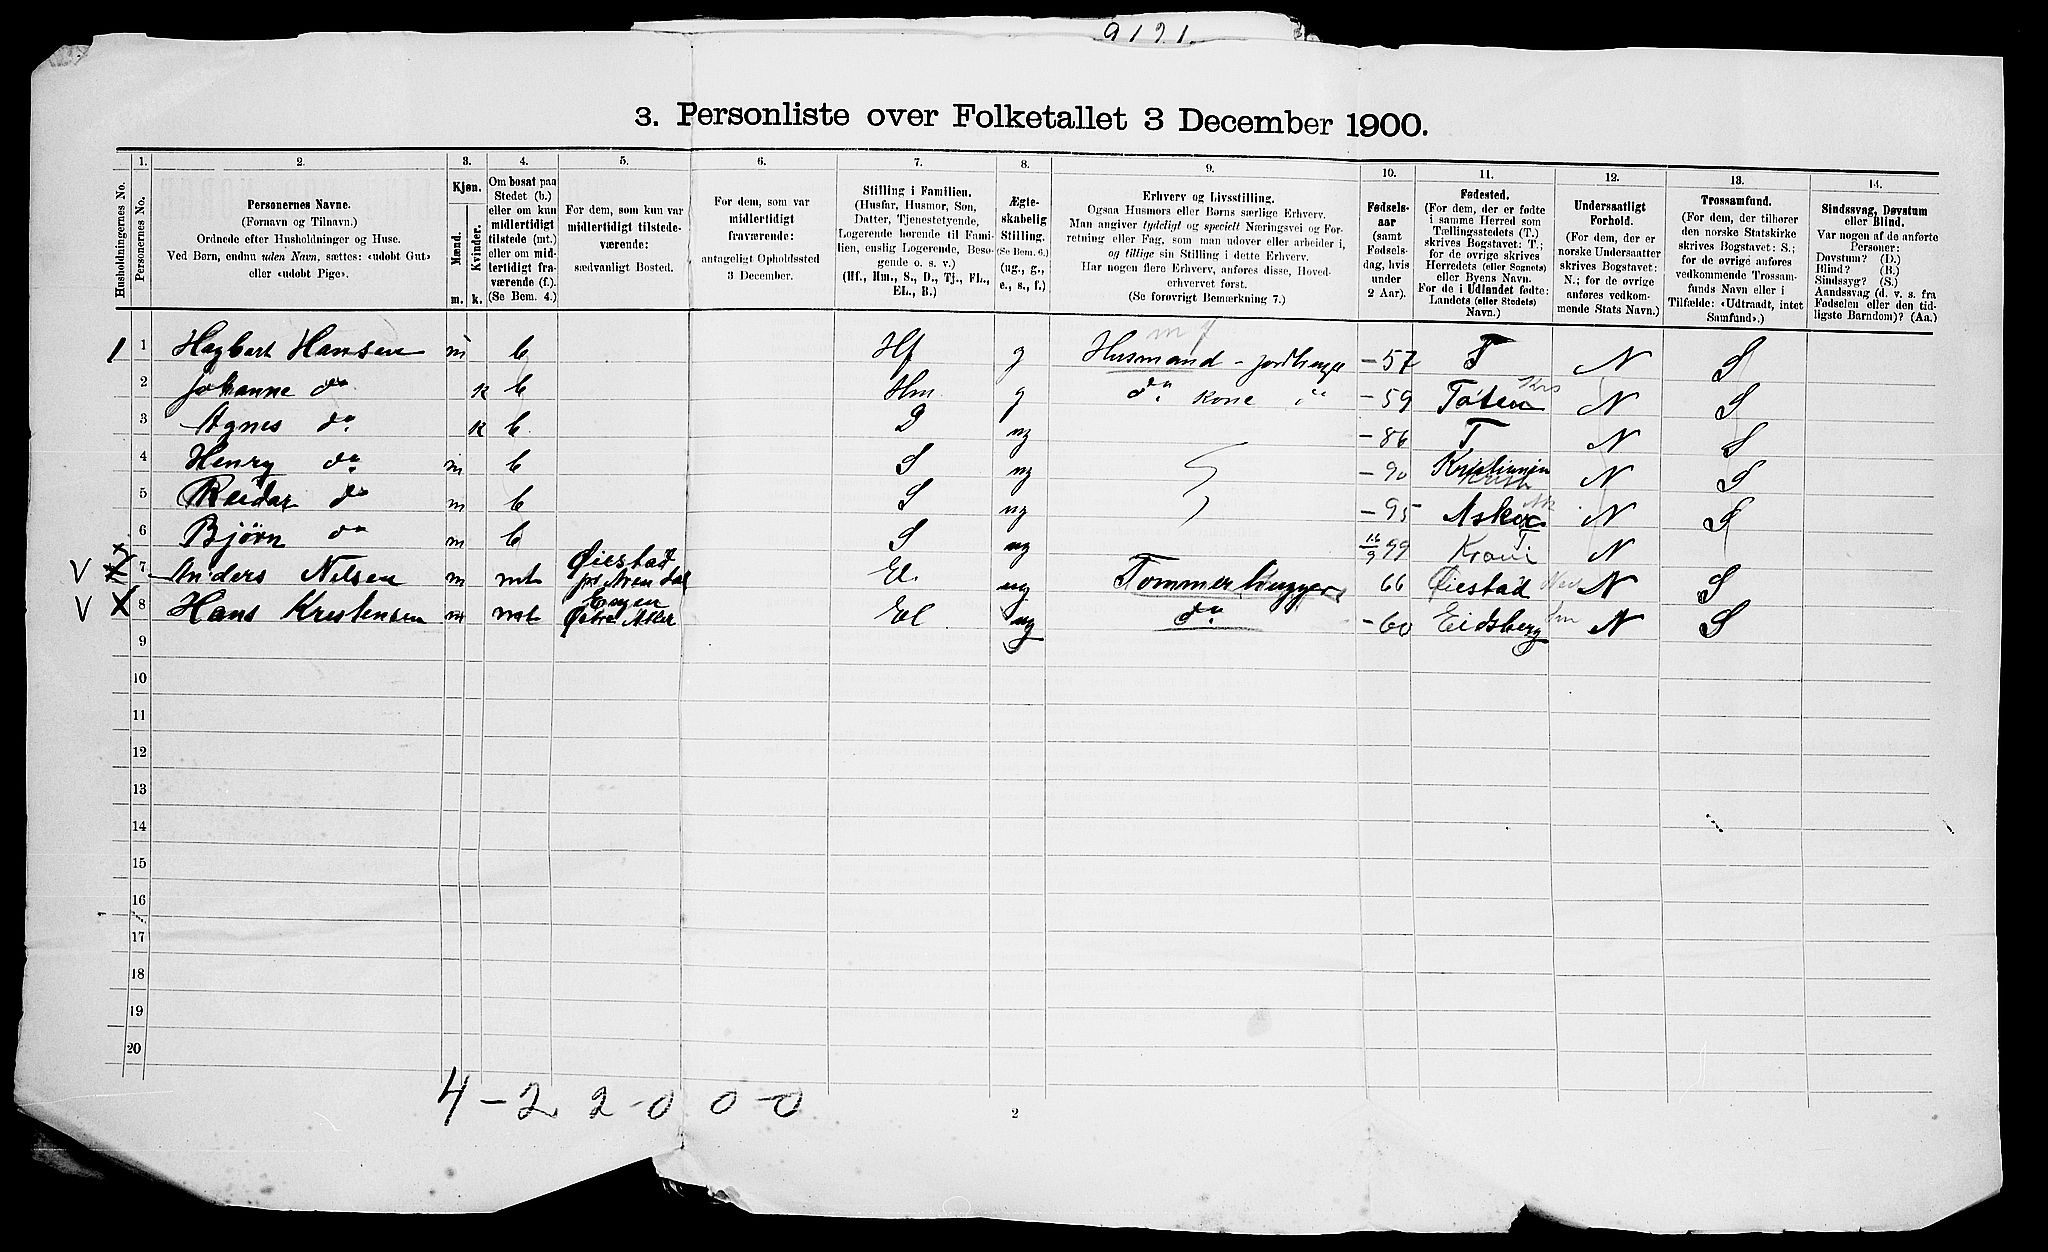 9121
3. Personliste over Folketallet 3 December 1900.
Husholdningernes No.
1. Personernes No.
2. Personernes Navne.
(Fornavn og Tilnavn.)
Ordnede efter Husholdninger og Huse.
Ved Børn, endnu uden Navn, sættes: «udobt Gut»
eller «udobt Pige».
3. Kjøn.
Mænd. Kvinder.
m. k.
4. Om bosat paa
Stedet (b.)
eller om kun
midlertidigt
tilstede (mt.)
eller om mid-
lertidigt fra-
værende (f.).
(Se Bem. 4.)
5. For dem, som kun var
midlertidigt tilstede-
værende:
sædvanligt Bosted.
6. For dem, som var
midlertidigt
fraværende:
antageligt Opholdssted
3 December.
7. Stilling i Familien.
(Husfar, Husmor, Søn,
Datter, Tjenestetyende,
Logerende hørende til Fami-
lien, enslig Logerende, Besø-
gende o. s. v.)
(Hf., Hm., S., D., Tj., FL.,
EL., B.)
8. Ægte-
skabelig
Stilling.
(Se Bem. 6.)
(ug., g.,
e., s., f.)
9. Erhverv og Livsstilling.
Ogsaa Husmors eller Børns særlige Erhverv.
Man angiver tydeligt og specielt Næringsvei og For-
retning eller Fag, som man udover eller arbeider i,
og tillige sin Stilling i dette Erhverv.
Har nogen flere Erhverv, anføres disse, Hoved-
erhvervet først.
(Se forøvrigt Bemærkning 7.)
10. Fødsels-
aar
(samt
Fødsels-
dag, hvis
under
2 Aar).
11. Fødested.
(For dem, der er fødte
i samme Herred som
Tællingsstedets (T.)
skrives Bogstavet: T;
for de øvrige skrives
Herredets (eller Sognets)
eller Byens Navn.
For de i Udlandet fødte:
Landets (eller Stedets)
Navn.)
12. Undersaatligt
Forhold.
(For dem, der er
norske Undersaatter
skrives Bogstavet:
N.; for de øvrige
anføres vedkom-
mende Stats Navn.)
13. Trossamfund.
(For dem, der tilhører
den norske Statskirke
skrives Bogstavet: S.;
for de øvrige anføres
vedkommende Trossam-
funds Navn eller i
Tilfælde: «Udtraadt, intet
Samfund».)
14. Sindssvag, Døvstum
eller Blind.
Var nogen af de anførte
Personer:
Døvstum? (D.)
Blind? (B.)
Sindssyg? (S.)
Aandssvag (d. v. s. fra
Fødselen eller den tid-
ligste Barndom)? (Aa.)
m f
1 1 Hagbart Hansen m b Hf g Husmand - jordbruger -57 T N S
2 Johanne do k b Hm. g do kone do -59 Toten Krs N S
3 Agnes do k b D ug -86 T N S
4 Henry do m b S ug -90 Kristiania N S
5 Reidar do m b S ug -95 Asker Ak N S
6 Bjørn do m b S ug 16/9 99 T N
V X 7 Anders Nilsen m mt Øiestad pr Arendal El. ug Tømmerhugger 66 Øiestad Ned N S
V X 8 Hans Kristensen m mt Engen Østre Aker El ug do -60 Eidsberg Sm N S
9
10
11
12
13
14
15
16
17
18
19
20
4-2 2-0 0-0
2